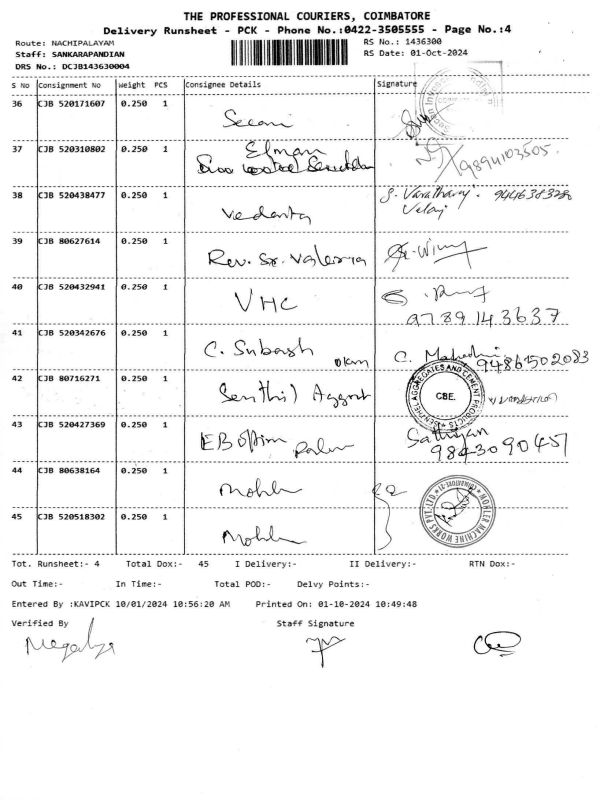 THE PROFESSIONAL COURIERS, COIMBATORE
Delivery Runsheet - PCK - Phone No.:0422-3505555 - Page No.:4
Route: NACHIPALAYAM RS No.: 1436300
Staff: SANKARAPANDIAN RS Date: 01-Oct-2024
DRS No.: DCJB143630004
S No Consignment No Weight PCS Consignee Details Signature
36 CJB 520171607 0.250 1
37 CJB 520310802 0.250 1 Elman
9894103505.
38 CJB 520438477 0.250 1 Vedanta S. Varatharaj.
39 CJB 80627614 0.250 1 Rev. Sr. Valeriya
40 CJB 520432941 0.250 1 VHC
9789143637
41 CJB 520342676 0.250 1 C. Subash 9486502083
42 CJB 80716271 0.250 1 Senthil
SENTHIL AGGREGATES AND CEMENT PRODUCTS
CBE.
43 CJB 520427369 0.250 1 Sathiyan
9843090451
44 CJB 80638164 0.250 1 Mohler
45 CJB 520518302 0.250 1 Mohler
MOHLER MACHINE WORKS PVT. LTD.
Tot. Runsheet:- 4 Total Dox:- 45 I Delivery:- II Delivery:- RTN Dox:-
Out Time:- In Time:- Total POD:- Delvy Points:-
Entered By :KAVIPCK 10/01/2024 10:56:20 AM Printed On: 01-10-2024 10:49:48
Verified By Staff Signature